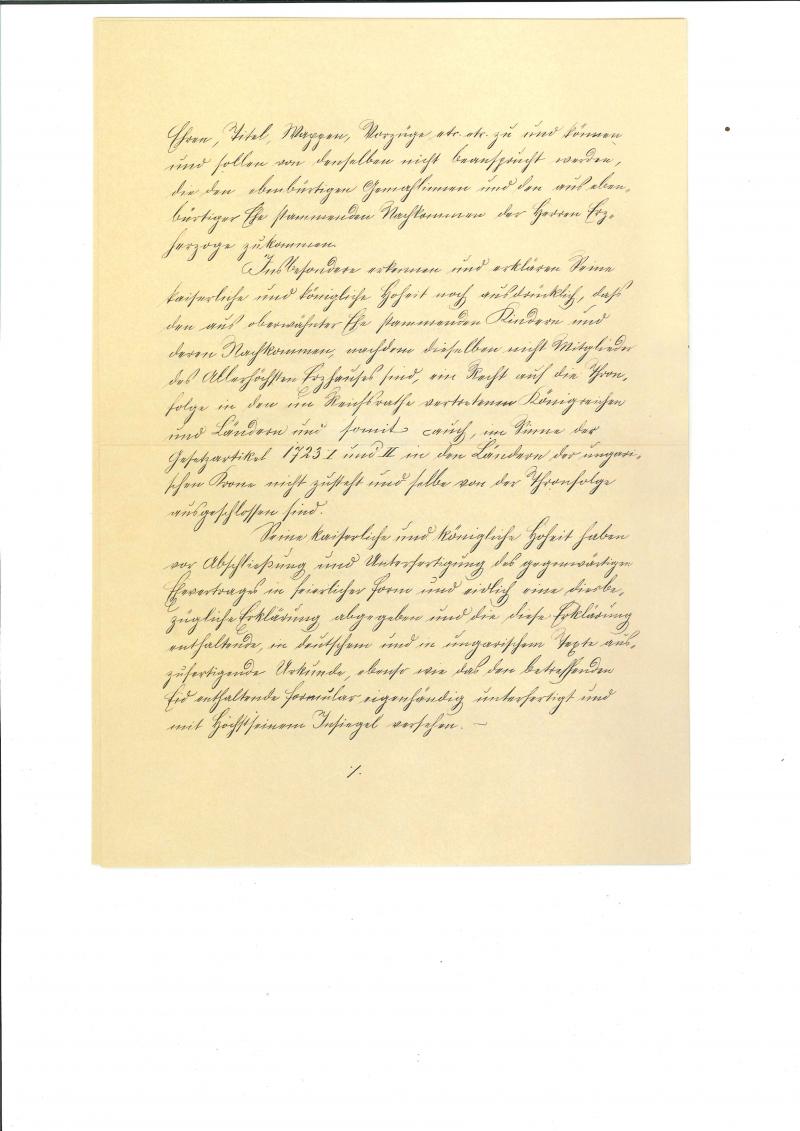 Ehren, Titel, Wappen, Vorzüge etc. etc. zu und können
und sollen von denselben nicht beansprucht werden,
die den ebenbürtigen Gemahlinnen und den aus eben-
bürtiger Ehe stammenden Nachkommen der Herren Erz-
herzoge zukommen.
Insbesondere erkennen und erklären Seine
kaiserliche und königliche Hoheit noch ausdrücklich, daß
den aus oberwähnter Ehe stammenden Kindern und
deren Nachkommen, nachdem dieselben nicht Mitglieder
des Allerhöchsten Erzhauses sind, ein Recht auf die Thron-
folge in den im Reichsrathe vertretenen Königreichen
und Ländern und somit auch, im Sinne der
Gesetzartikel 1723 I und II in den Ländern der ungari-
schen Krone nicht zusteht und selbe von der Thronfolge
ausgeschlossen sind.
Seine kaiserliche und königliche Hoheit haben
vor Abschließung und Unterfertigung des gegenwärtigen
Ehevertrages in feierlicher Form und eidlich eine diesbe-
zügliche Erklärung abgegeben und die diese Erklärung
enthaltende, in deutschem und in ungarischem Texte aus-
zufertigende Urkunde, ebenso wie das den betreffenden
Eid enthaltende Formular eigenhändig unterfertigt und
mit Höchstseinem Insiegel versehen. —
./.